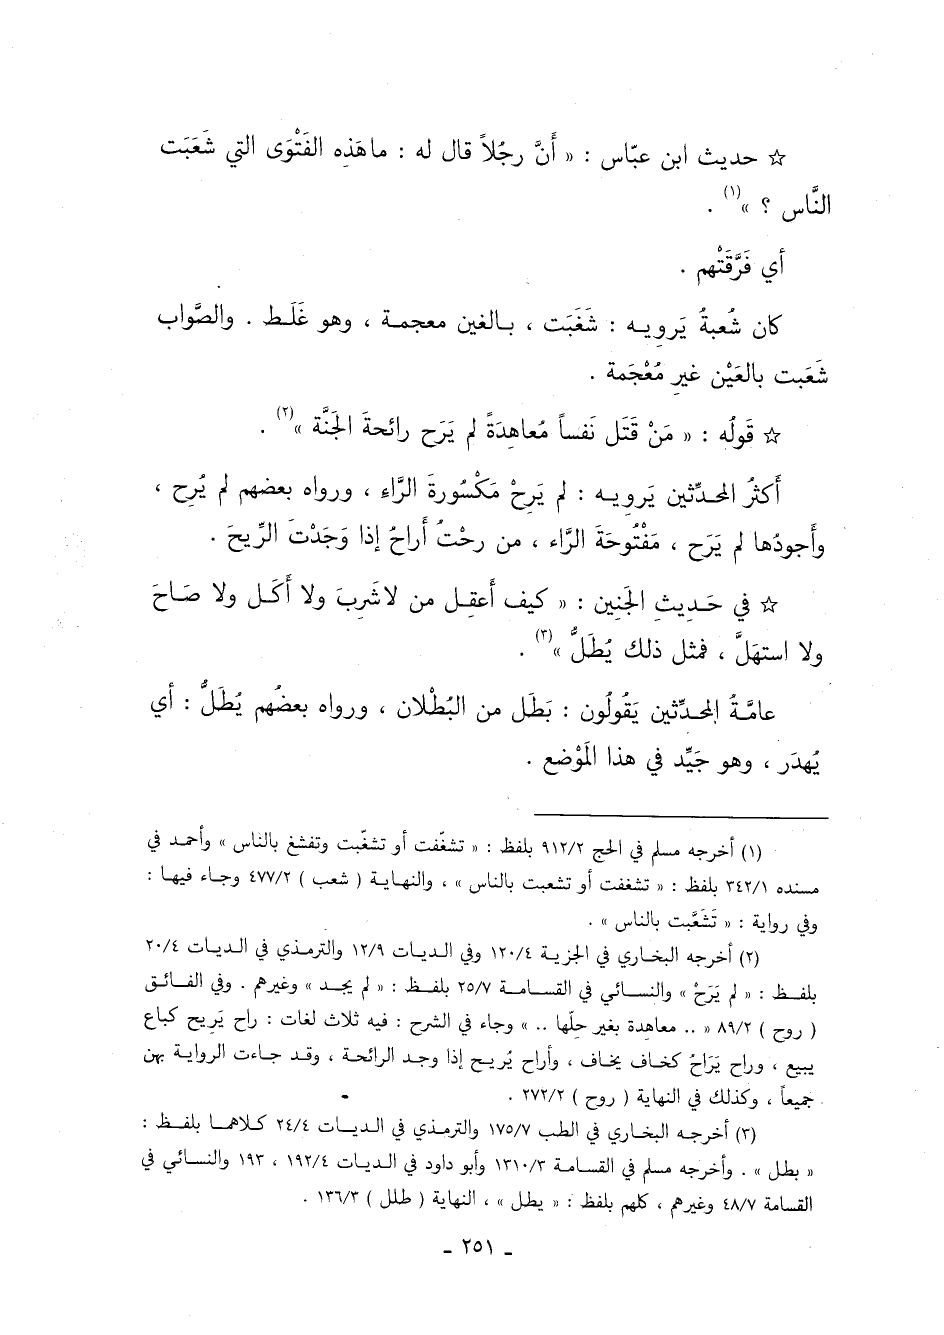 ☆ حديث ابن عبّاس : « أَنَّ رجُلاً قال له : ما هَذِه الفَتْوَى التي شَعَبَت
النَّاس ؟ »(١) .
أي فَرَّقَتْهم .
كان شُعبةُ يَرويـه : شَغَبَت ، بـالغين معجمـة ، وهو غَلَـط . والصَّواب
شَعَبت بالعَيْن غيرِ مُعْجَمة .
☆ قولُه : « مَنْ قَتَل نَفساً مُعاهِدَةً لم يَرَح رائحةَ الجَنَّة »(٢) .
أَكثرُ المحدِّثين يَرويـه : لم يَرِحْ مَكْسُورةَ الرَّاء ، ورواه بعضهم لم يُرِح ،
وأَجودُها لم يَرَح ، مَفْتُوحَةَ الرَّاء ، من رِحْتُ أَراحُ إذا وَجَدْتَ الرِّيحَ .
☆ في حَـديثِ الجَنِين : « كيف أَعقِـل من لا شَرِبَ ولا أَكَـل ولا صَـاحَ
ولا استهَلَّ ، فمثل ذلك يُطَلُّ »(٣) .
عامَّـةُ المحدِّثين يَقُولُون : بَطَل من البُطْلان ، ورواه بعضُهم يُطَلُّ : أي
يُهدَر ، وهو جَيِّد في هذا المَوْضع .
(١) أخرجه مسلم في الحج ٩١٢/٢ بلفظ : « تشغّفت أو تشغّبت وتفشغ بالناس » وأحمد في
مسنده ٣٤٢/١ بلفظ : « تشغفت أو تشعبت بالناس » ، والنهـايـة ( شعب ) ٤٧٧/٢ وجـاء فيهـا :
وفي رواية : « تَشَعَّبت بالناس » .
(٢) أخرجه البخـاري في الجزية ١٢٠/٤ وفي الديات ١٢/٩ والترمـذي في الـديـات ٢٠/٤
بلفـظ : « لم يَرَحْ » والنسـائي في القسـامـة ٢٥/٧ بلفـظ : « لم يجـد » وغيرهم . وفي الفـائـق
( روح ) ٨٩/٢ « .. معاهدة بغير حِلِّها .. » وجاء في الشرح : فيه ثلاث لغات : راح يَرِيح كباع
يبيع ، وراح يَرَاحُ كخاف يخاف ، وأراح يُريـح إذا وجد الرائحة ، وقـد جـاءت الروايـة بهن
جميعاً ، وكذلك في النهاية ( روح ) ٢٧٢/٢ .
(٣) أخرجـه البخـاري في الطب ١٧٥/٧ والترمذي في الديـات ٢٤/٤ كـلاهمـا بلفـظ :
« بطل » . وأخرجه مسلم في القسامة ١٣١٠/٣ وأبو داود في الديات ١٩٢/٤ ، ١٩٣ والنسائي في
القسامة ٤٨/٧ وغيرهم ، كلهم بلفظ : « يطل » ، النهاية ( طلل ) ١٣٦/٣ .
ـ ٢٥١ ـ